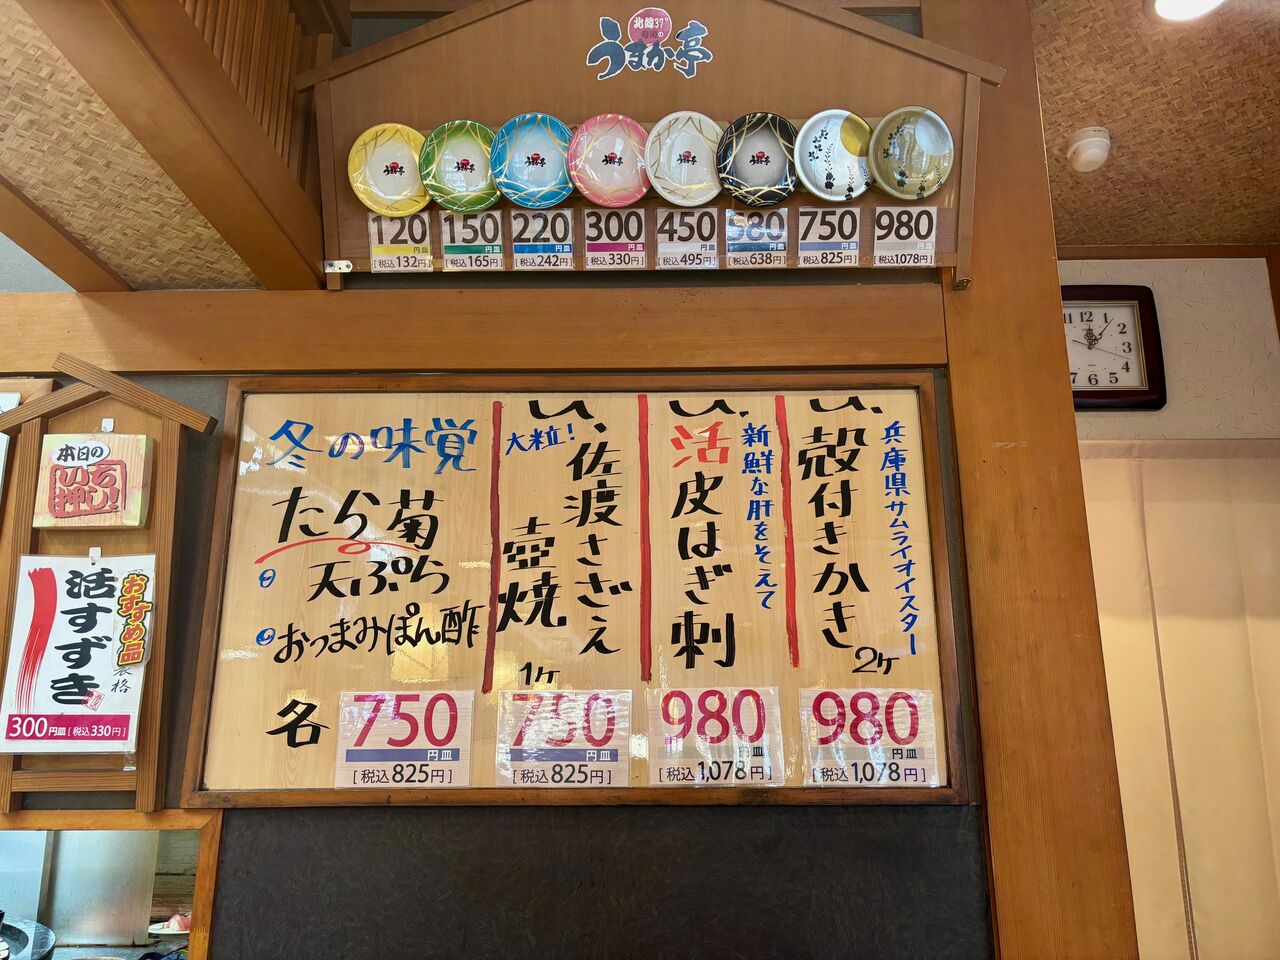 北緯37°
寿司の
うまか亭
うまか亭
うまか亭
うまか亭
うまか亭
うまか亭
うまか亭
120
円皿
[税込132円]
150
円皿
[税込165円]
220
円皿
[税込242円]
300
円皿
[税込330円]
450
円皿
[税込495円]
580
円皿
[税込638円]
750
円皿
[税込825円]
980
円皿
[税込1,078円]
11 12 1
2
3
4
7 6 5
本日の
いち
押し!
おすすめ品
活すずき
300円皿[税込330円]
兵庫県サムライオイスター
殻付きかき
2ヶ
980
円皿
[税込1,078円]
新鮮な肝をそえて
活皮はぎ刺
980
円皿
[税込1,078円]
大粒!
佐渡さざえ
壺焼
1ヶ
750
円皿
[税込825円]
冬の味覚
たら菊
天ぷら
おつまみぽん酢
各
750
円皿
[税込825円]